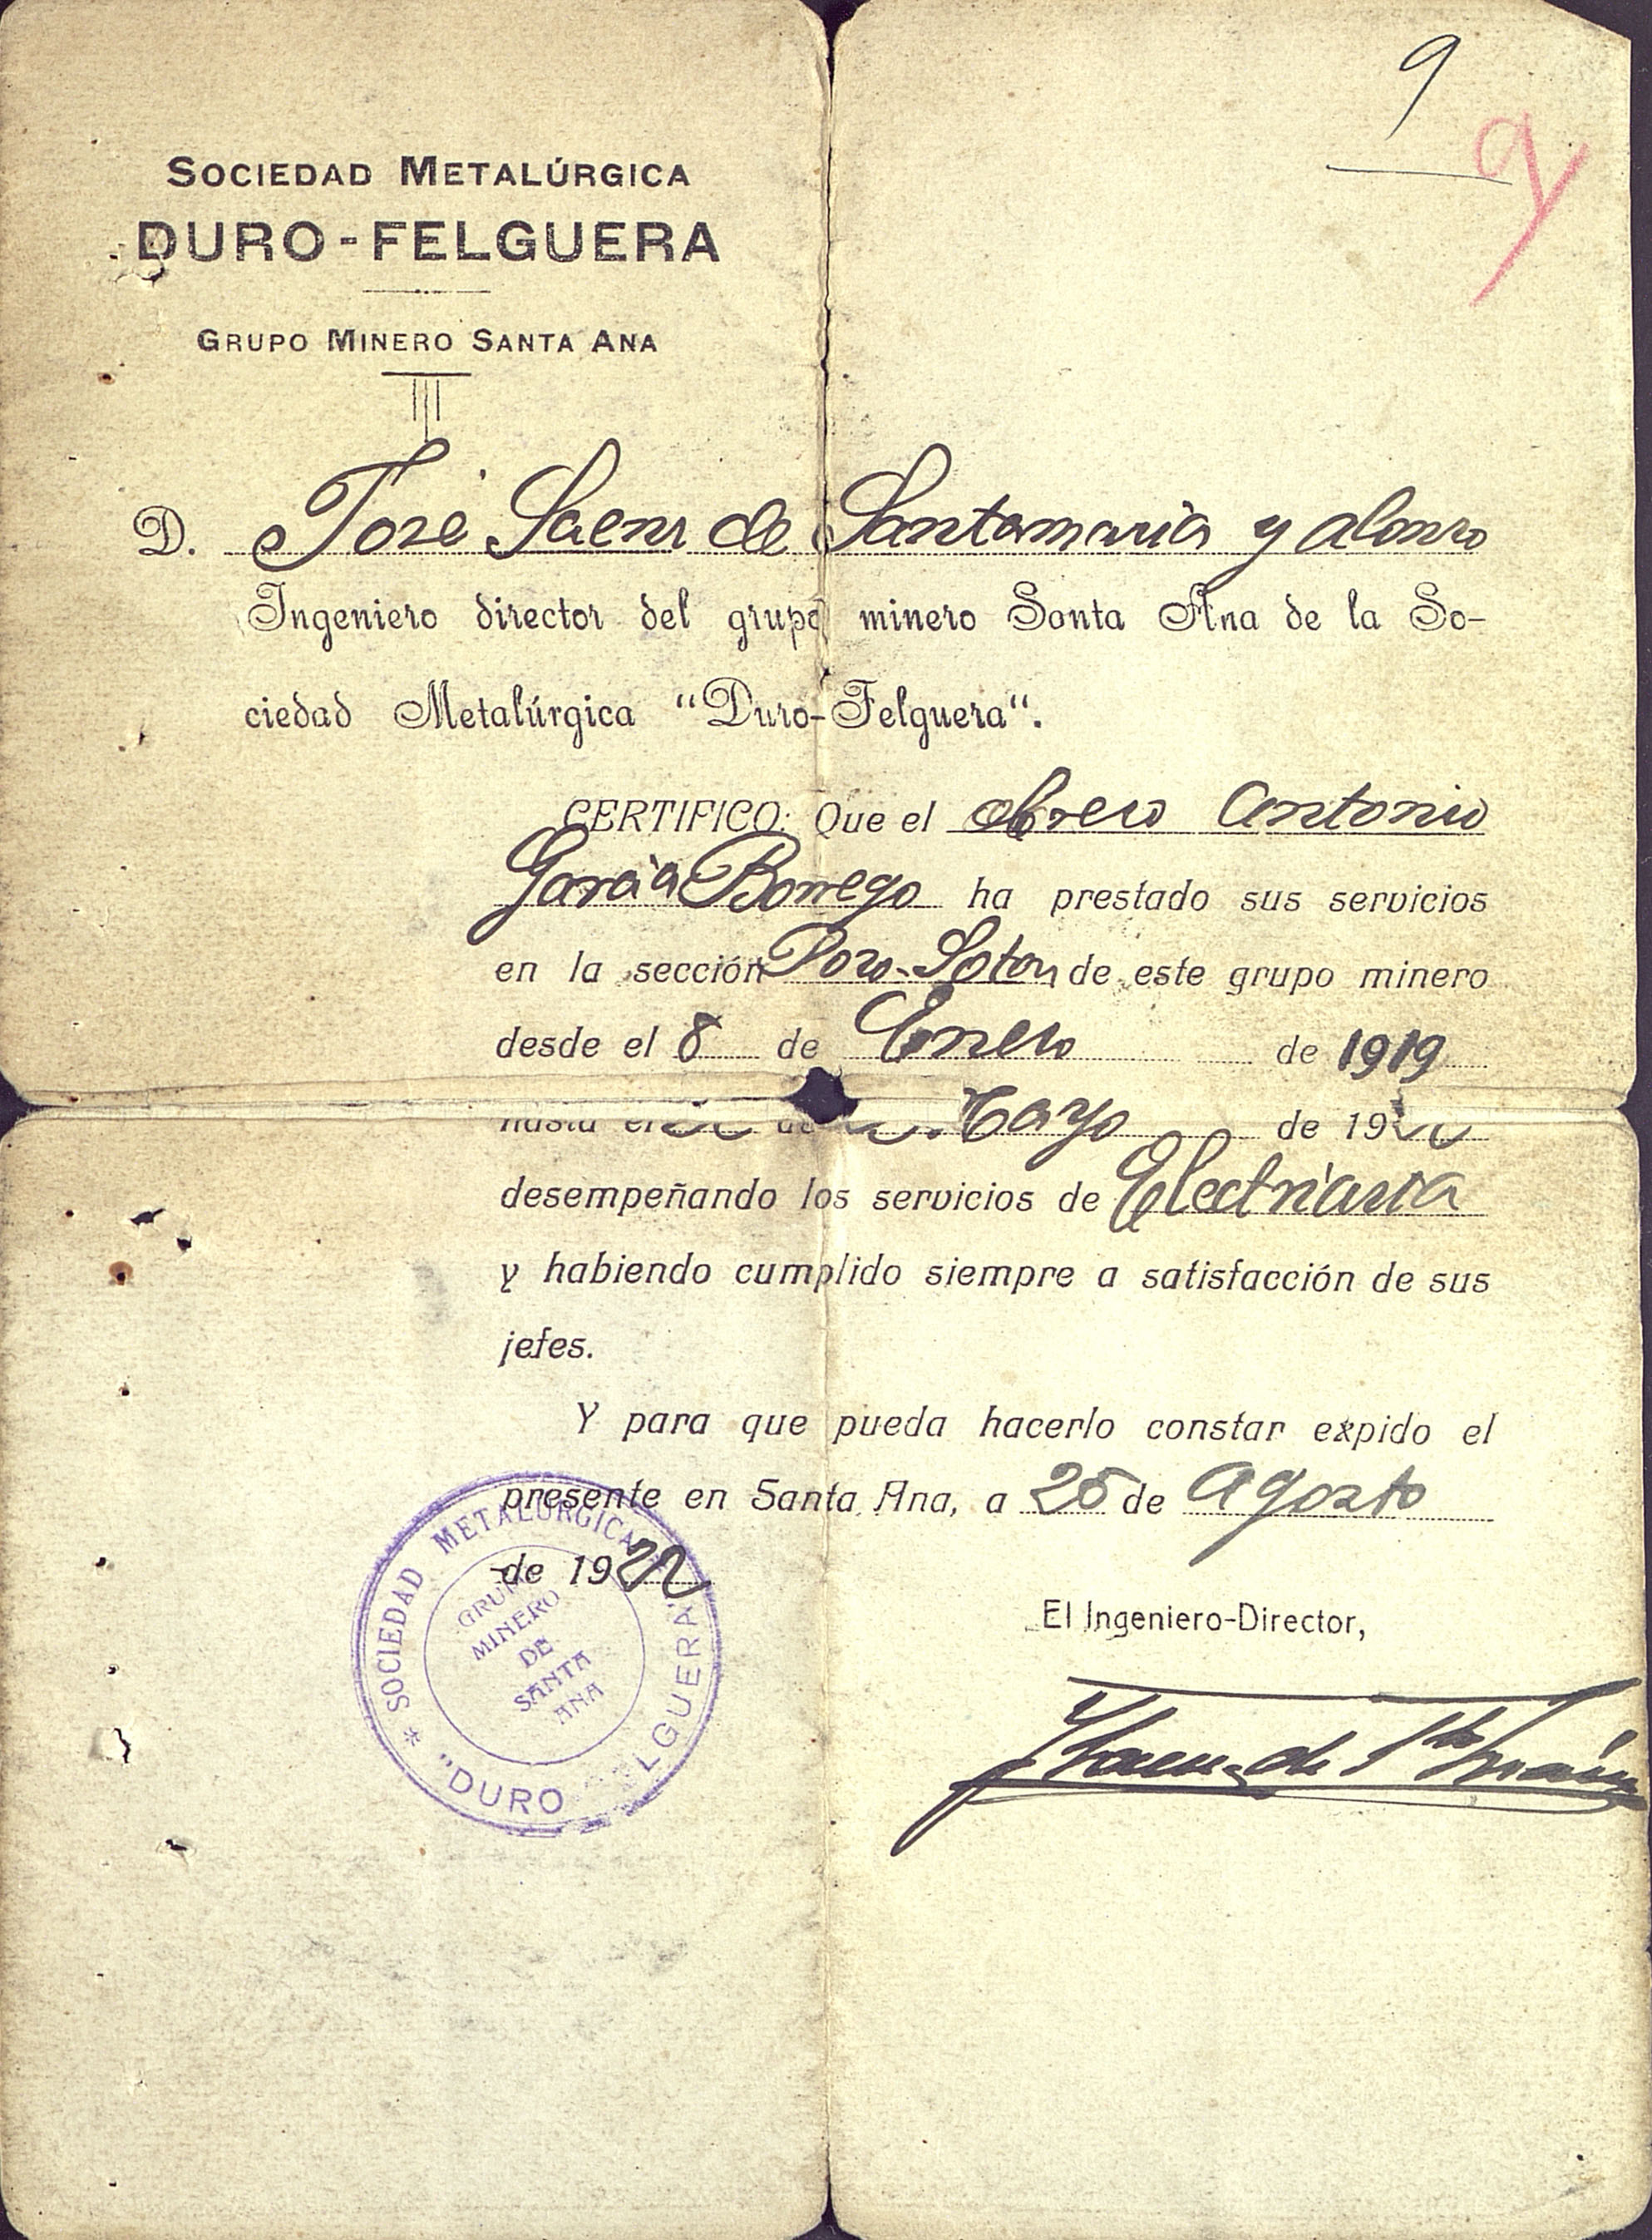 9
9
SOCIEDAD METALÚRGICA
DURO-FELGUERA
GRUPO MINERO SANTA ANA
D. José Saenz de Santamaria y Alonso
Ingeniero director del grupo minero Santa Ana de la So-
ciedad Metalúrgica “Duro-Felguera“.
CERTIFICO: Que el obrero Antonio
García Borrego ha prestado sus servicios
en la sección Pozo-Soton de este grupo minero
desde el 8 de Enero de 1919
hasta el de Mayo de 19
desempeñando los servicios de Electricista
y habiendo cumplido siempre a satisfacción de sus
jefes.
Y para que pueda hacerlo constar expido el
presente en Santa Ana, a 25 de Agosto
de 1922
El Ingeniero-Director,
* SOCIEDAD METALÚRGICA "DURO FELGUERA"
GRUPO
MINERO
DE
SANTA
ANA